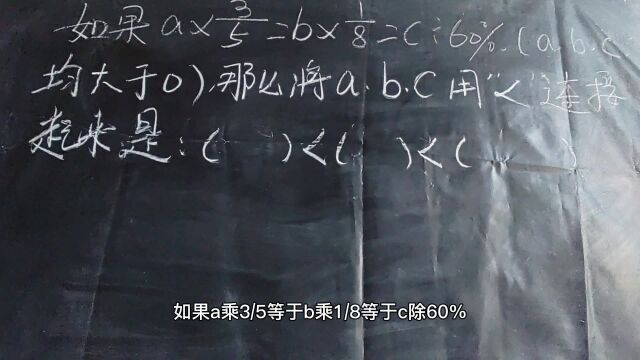 如果a×3/5=b×1/8=c÷60%.(a.b.c
均大于0),那么将a.b.c用“<”连接
起来是:( )<( )<( )
如果a乘3/5等于b乘1/8等于c除60%